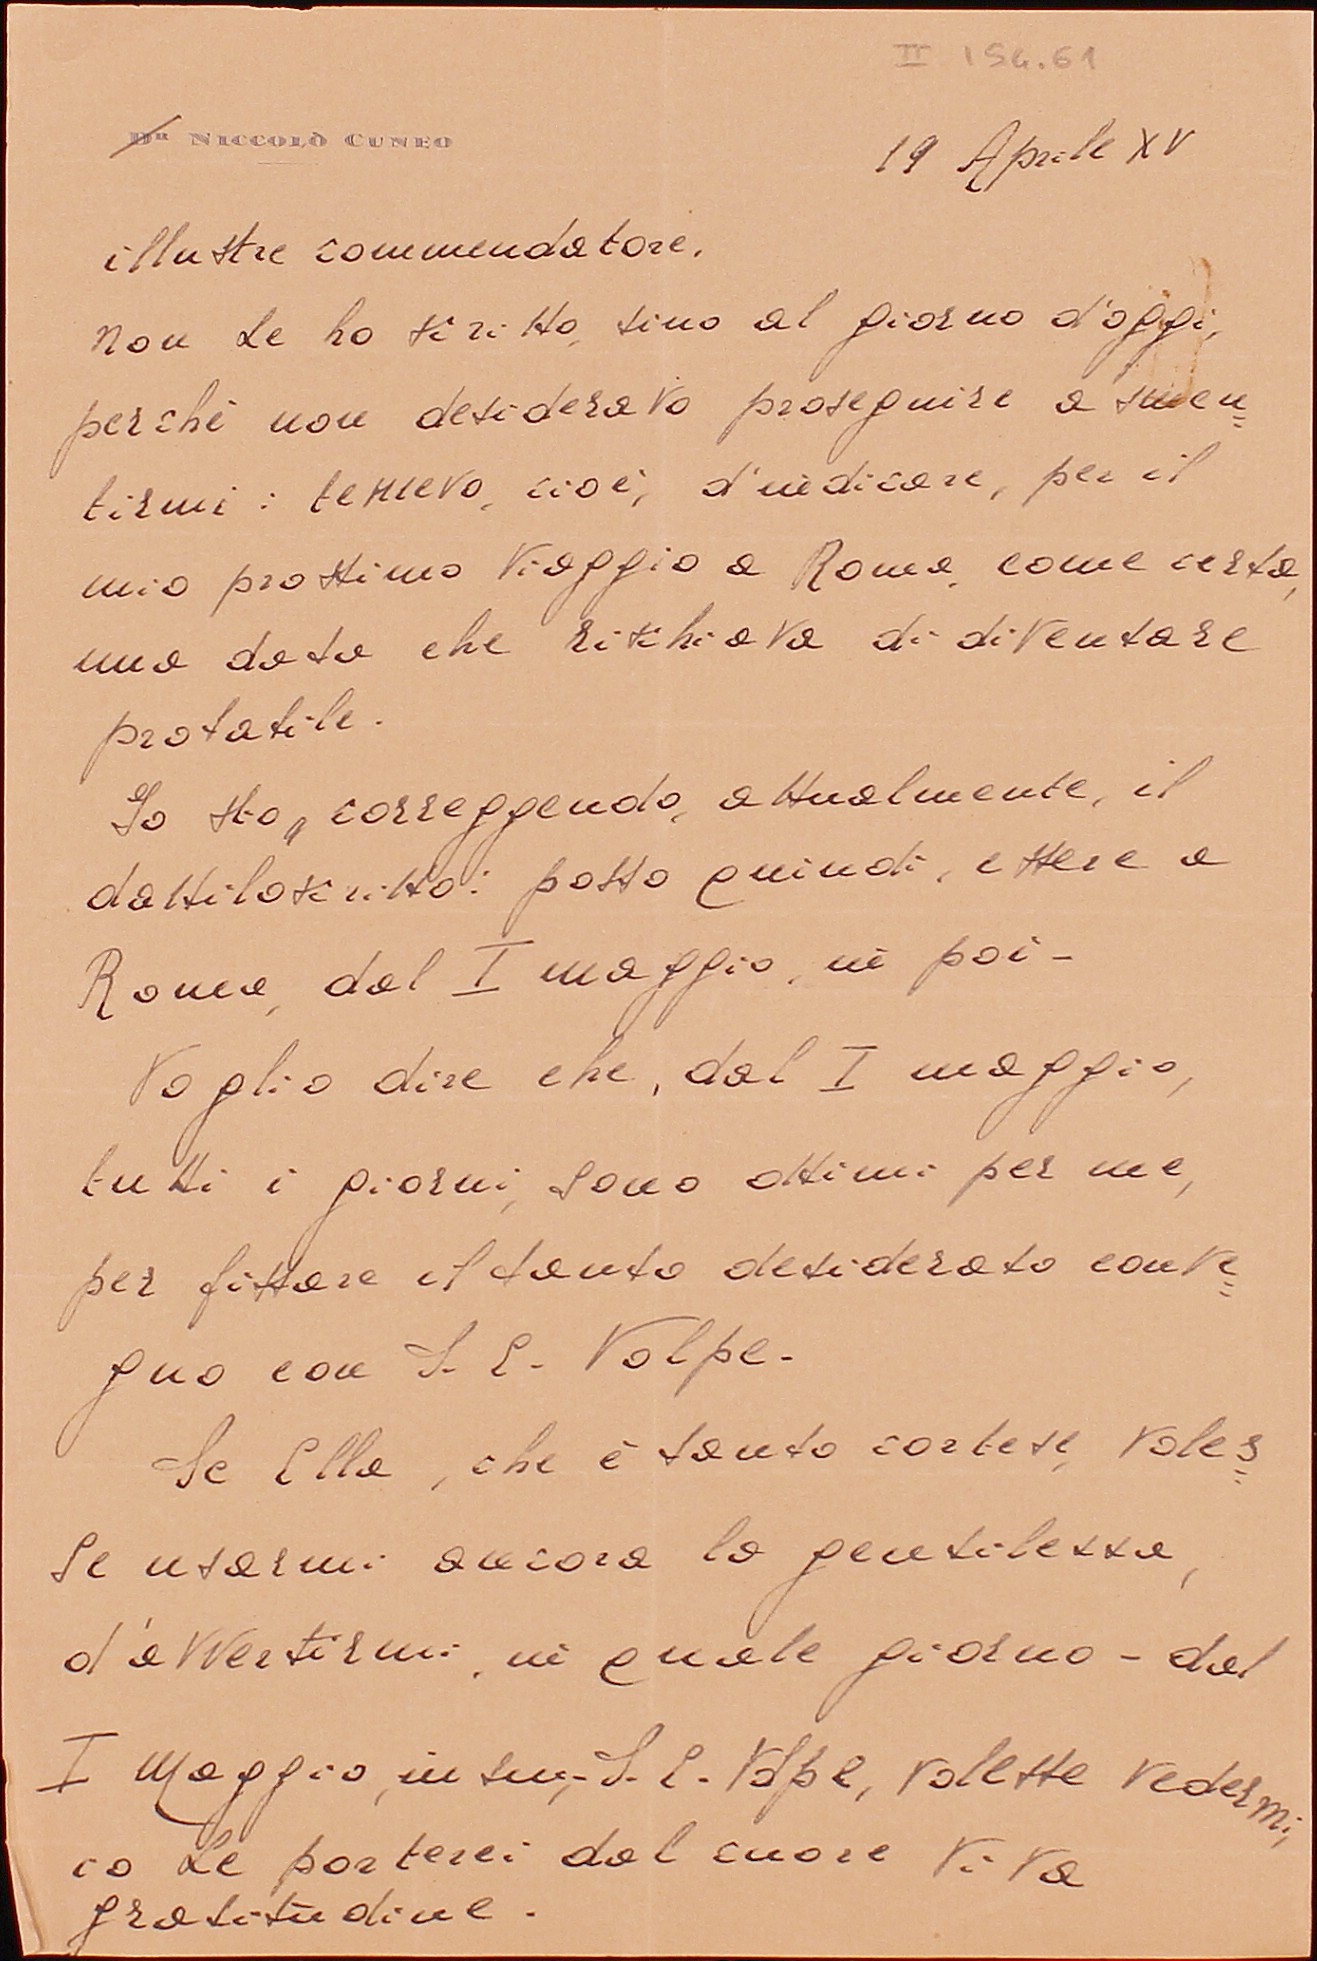 II 154.61
Dr NICCOLÒ CUNEO
19 Aprile XV
illustre commendatore.
Non Le ho scritto, sino al giorno d'oggi,
perchè non desideravo proseguire a smen=
tirmi: temevo, cioè, d'indicare, per il
mio prossimo viaggio a Roma, come certa,
una data che rischiava di diventare
protatile.
Io sto, correggendo, attualmente, il
dattiloscritto: posso quindi, essere a
Roma, dal I maggio, in poi-
Voglio dire che, dal I maggio,
tutti i giorni, sono ottimi per me,
per fissare il tanto desiderato conve=
gno con S. E. Volpe-
Se Ella, che è tanto cortese, voles=
se usarmi ancora la gentilezza,
d'avvertirmi, in quale giorno - dal
I Maggio, in su,- S. E. Volpe, volesse vedermi,
io Le porterei dal cuore viva
gratitudine.